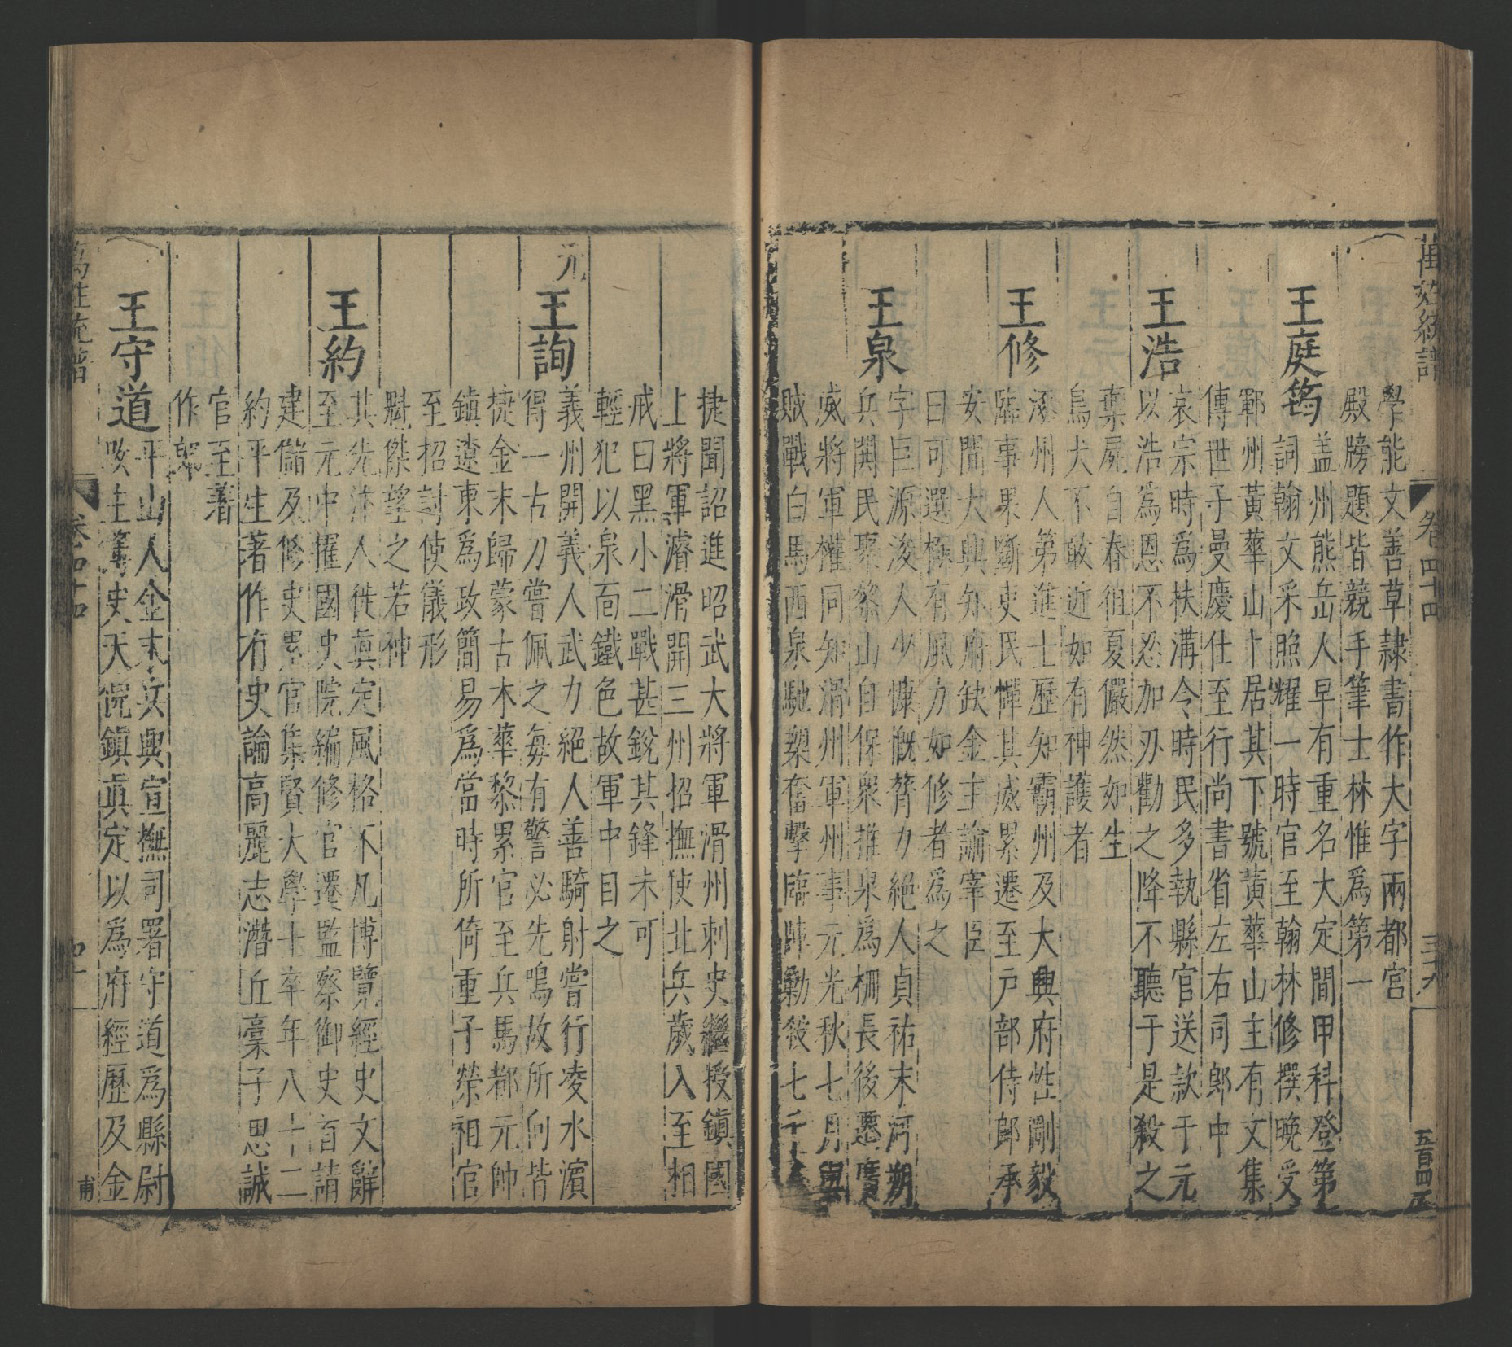 萬姓統譜
卷四十四
三十九
學能文善草隷書作大字兩都宮
殿牓題皆競手筆士林惟爲第一
王庭筠
盖州熊岳人早有重名大定間甲科登第
詞翰文采照耀一時官至翰林修撰晚受
鄆州黃華山卜居其下號黃華山主有文集
傳世子曼慶仕至行尚書省左右同郎中
王浩
哀宗時爲扶溝令時民多執縣官送款于元
以浩爲恩不忍加刃勸之降不聽于是殺之
棄屍自春徂夏儼然如生
烏犬不敢近如有神護者
王修
涿州人第進士歷知霸州及大興府性剛毅
臨事果斷吏民憚其威累遷至戸部侍郎承
安間大興知府缺金主諭宰臣
曰可選極有風力如修者爲之
王泉
字巨源浚人少慷慨膂力絕人貞祐末河朔
兵興民聚黎山自保衆推泉爲柵長後遷廣
威將軍權同知滑州軍州事元光秋七月與
賊戰白馬西泉馳槊奮擊臨陣勦殺七千
捷聞詔進昭武大將軍滑州刺史繼授鎮國
上將軍濬滑開三州招撫使北兵歲入至相
戒曰黑小二戰甚銳其鋒未可
輕犯以泉面鐵色故軍中目之
元
王詢
義州開義人武力絕人善騎射嘗行凌水濱
得一古刀嘗佩之每有警必先鳴故所向皆
捷金末歸蒙古木華黎累官至兵馬都元帥
鎮遼東爲政簡易爲當時所倚重子榮祖官
至招討使儀形
魁傑望之若神
王約
其先汴人徙眞定風格不凡博覽經史文辭
至元中擢國史院編修官遷監察御史首請
建儲及修史累官集賢大學士卒年八十二
約平生著作有史論高麗志潛丘稾子思誠
官至著
作郎
王守道
平山人金末汶興宣撫司署守道爲縣尉
歲主簿史天倪鎮眞定以爲府經歷及金
萬姓統譜
卷四十四
四十